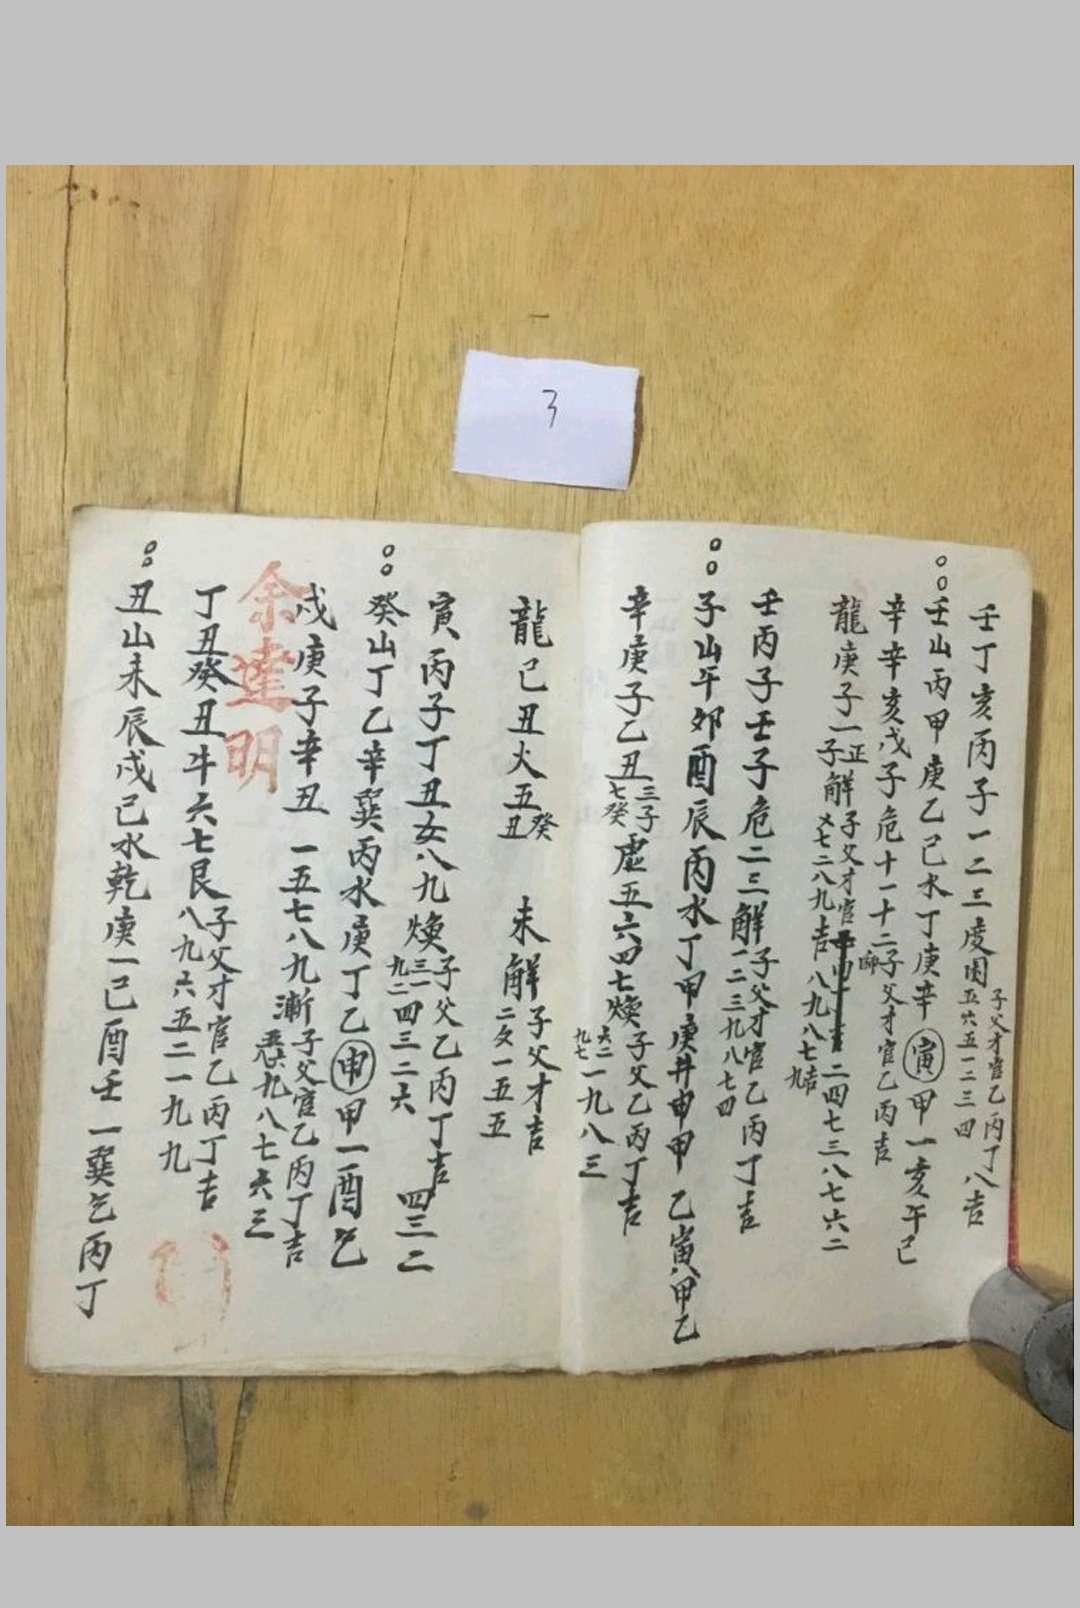 3
壬丁亥丙子一二三度困子父才官乙丙丁八吉
五六五一二三四
壬山丙甲庚乙己水丁庚辛寅甲一亥午己
辛辛亥戊子危十一十二子父才官乙丙吉
龍庚子一正子解子父才官
二四七三八七六二
七二八九吉八九八七九吉
壬丙子壬子危二三解子父才官乙丙丁吉
一二三九八七四
子山午卯酉辰丙水丁甲庚井申甲乙寅八甲乙
辛庚子乙丑三子七癸虛五六四七煥子父乙丙丁吉
六二九七一九八三
龍己丑火五癸丑未解子父才吉
二女一五五
寅丙子丁丑女八九煥子父乙丙丁吉
三一九二四三二六四三二
癸山丁乙辛巽丙水庚丁乙申甲一酉乙
戊庚子辛丑一五七八九漸子父官乙丙丁吉
九八七六三
余達明
丁丑癸丑牛六七艮子父才官乙丙丁吉
八九六五二一九九
丑山未辰戌己水乾庚一己酉壬一巽乞丙丁